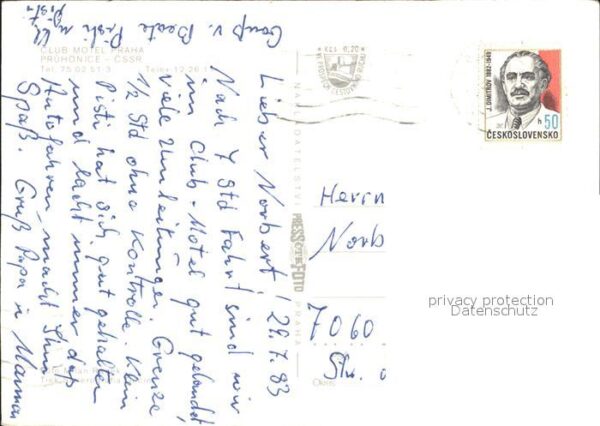 CLUB MOTEL PRAHA
PRŮHONICE - ČSSR
Tel. 75 02 51-3
Telex 12 26
Gruß v. Beate Pisti u. Kl.
Pisti
Lieber Norbert! 29.7.83
Nach 7 Std Fahrt sind wir
im Club-Motel gut gelandet
viele Umleitungen. Grenze
1/2 Std ohne Kontrolle. Klein
Pisti hat sich gut gehalten
und lacht immer, daß
Autofahren macht ihm
Spaß. Gruß Papa u. Mamau
NAKLADATELSTVÍ
PRESSFOTO
PRAHA
Kčs 0,20
J. DIMITROV 1882-1949
h 50
ČESKOSLOVENSKO
Herrn
Norb
7060
Str.
Okres
privacy protection
Datenschutz